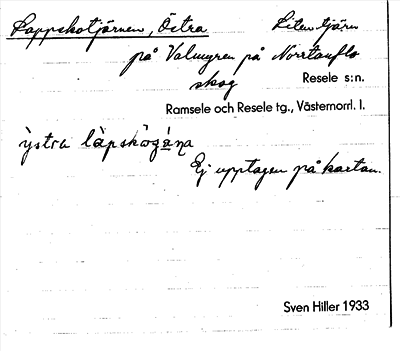 Lappskotjärnen, Östra Liten tjärn
på Valmyren på Norrtanflo
skog Resele s:n.
Ramsele och Resele tg., Västernorrl. l.
Ej upptagen på kartan.
Sven Hiller 1933